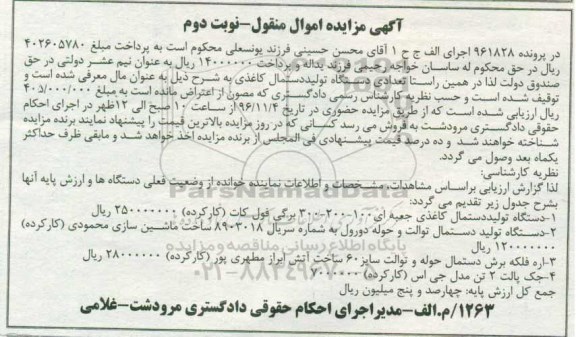 آگهی مزایده اموال منقول-نوبت دوم
در پرونده ۹۶۱۸۲۸ اجرای الف ج ح ۱ آقای محسن حسینی فرزند یوسفعلی محکوم است به پرداخت مبلغ ۴۰۲۶۰۵۷۸۰
ریال در حق محکوم له ساسان خواجه رحیمی فرزند یداله و پرداخت ۱۴۰۰۰۰۰۰ ریال به عنوان نیم عشر دولتی در حق
صندوق دولت لذا در همین راستا تعدادی دستگاه تولیددستمال کاغذی به شرح ذیل به عنوان مال معرفی شده است و
توقیف شده است و حسب نظریه کارشناس رسمی دادگستری که مصون از اعتراض مانده است به مبلغ ۴۰۵/۰۰۰/۰۰۰
ریال ارزیابی شده است که از طریق مزایده حضوری در تاریخ ۹۶/۱۱/۴ از ساعت ۱۰ صبح الی ۱۲ظهر در اجرای احکام
حقوقی دادگستری مرودشت به فروش می رسد کسانی که در روز مزایده بالاترین قیمت را پیشنهاد نمایند برنده مزایده
شناخته خواهند شد و ده درصد قیمت پیشنهادی فی المجلس از برنده مزایده اخذ خواهد شد و مابقی ظرف حداکثر
یکماه بعد وصول می گردد.
نظریه کارشناسی:
لذا گزارش ارزیابی براساس مشاهدات، مشخصات و اطلاعات نماینده خوانده از وضعیت فعلی دستگاه ها و ارزش پایه آنها
بشرح جدول زیر تقدیم می گردد:
۱-دستگاه تولیددستمال کاغذی جعبه ای۱۰۰-۲۰۰-۳۰۰ برگی فول کات (کارکرده) ۲۵۰۰۰۰۰۰۰ ریال
۲-دستگاه تولید دستمال توالت و حوله دورول به شماره سریال ۸۹۰۳۰۱۸ ساخت ماشین سازی محمودی (کارکرده)
۱۲۰۰۰۰۰۰۰ ریال
۳-اره فلکه برش دستمال حوله و توالت سایز۶۰ ساخت آتش ابزار مطهری پور (کارکرده) ۲۸۰۰۰۰۰۰ ریال
۴-جک پالت ۲ تن مدل جی اس (کارکرده) ۷۰۰۷۰۰۰
جمع کل ارزش پایه: چهارصد و پنج میلیون ریال
۱۲۶۳/م.الف-مدیراجرای احکام حقوقی دادگستری مرودشت-غلامی
ParsNamadData
پایگاه اطلاع رسانی مناقصه و مزایده
۰۲۱-۸۸۳۴۹۶۷۰